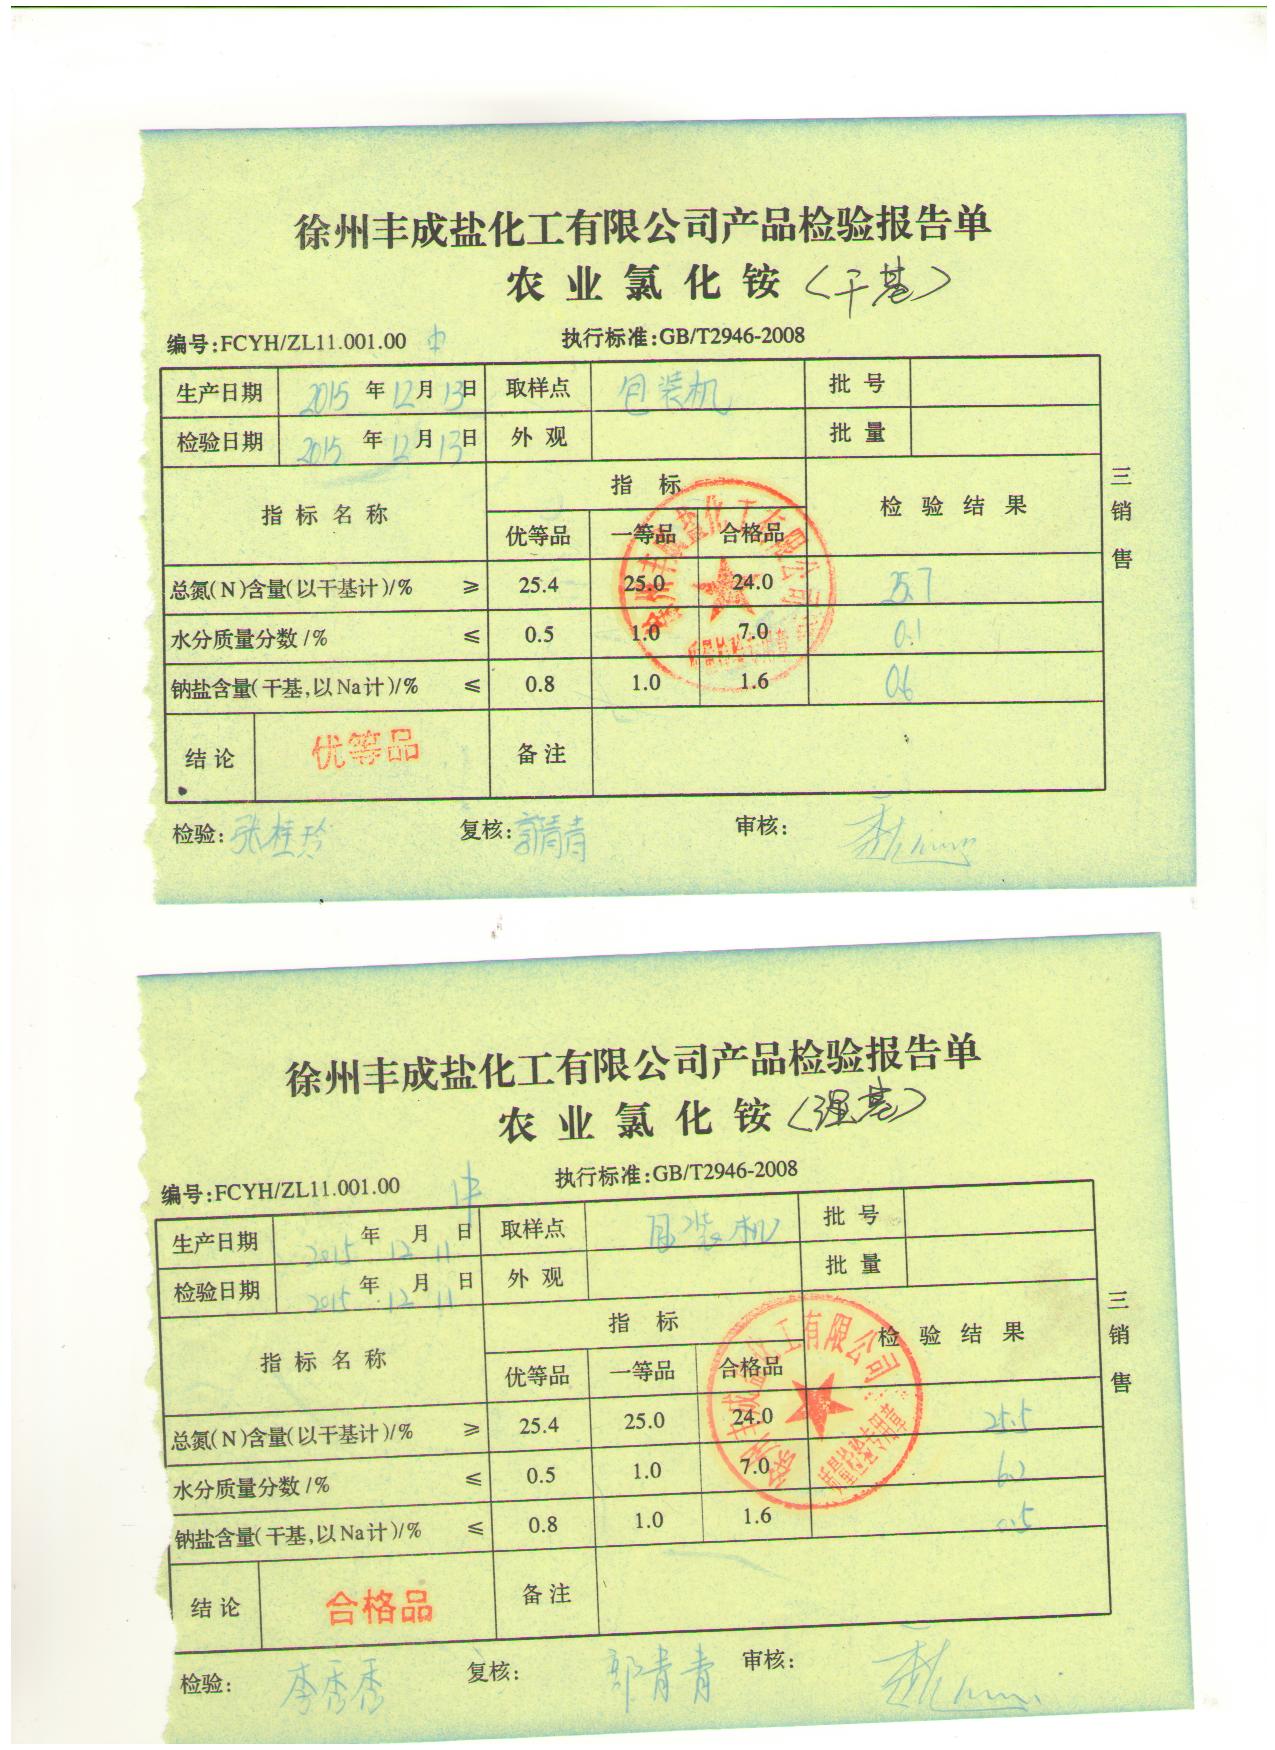 徐州丰成盐化工有限公司产品检验报告单
农业氯化铵（干基）
编号:FCYH/ZL11.001.00 中 执行标准:GB/T2946-2008
生产日期 2015年12月13日 取样点 包装机 批号
检验日期 2015年12月13日 外观 批量
指标名称 指标 检验结果
优等品 一等品 合格品
总氮(N)含量(以干基计)/% ≥ 25.4 25.0 24.0 25.7
水分质量分数/% ≤ 0.5 1.0 7.0 0.1
钠盐含量(干基,以Na计)/% ≤ 0.8 1.0 1.6 0.6
结论 优等品 备注
检验: 张桂玲 复核: 郭青青 审核:
三销售
徐州丰成盐化工有限公司
质量检验专用章
徐州丰成盐化工有限公司产品检验报告单
农业氯化铵（湿基）
编号:FCYH/ZL11.001.00 执行标准:GB/T2946-2008
生产日期 2015年12月11日 取样点 包装机 批号
检验日期 2015年12月11日 外观 批量
指标名称 指标 检验结果
优等品 一等品 合格品
总氮(N)含量(以干基计)/% ≥ 25.4 25.0 24.0 25.5
水分质量分数/% ≤ 0.5 1.0 7.0
钠盐含量(干基,以Na计)/% ≤ 0.8 1.0 1.6 0.5
结论 合格品 备注
检验: 李秀秀 复核: 郭青青 审核:
三销售
徐州丰成盐化工有限公司
质量检验专用章